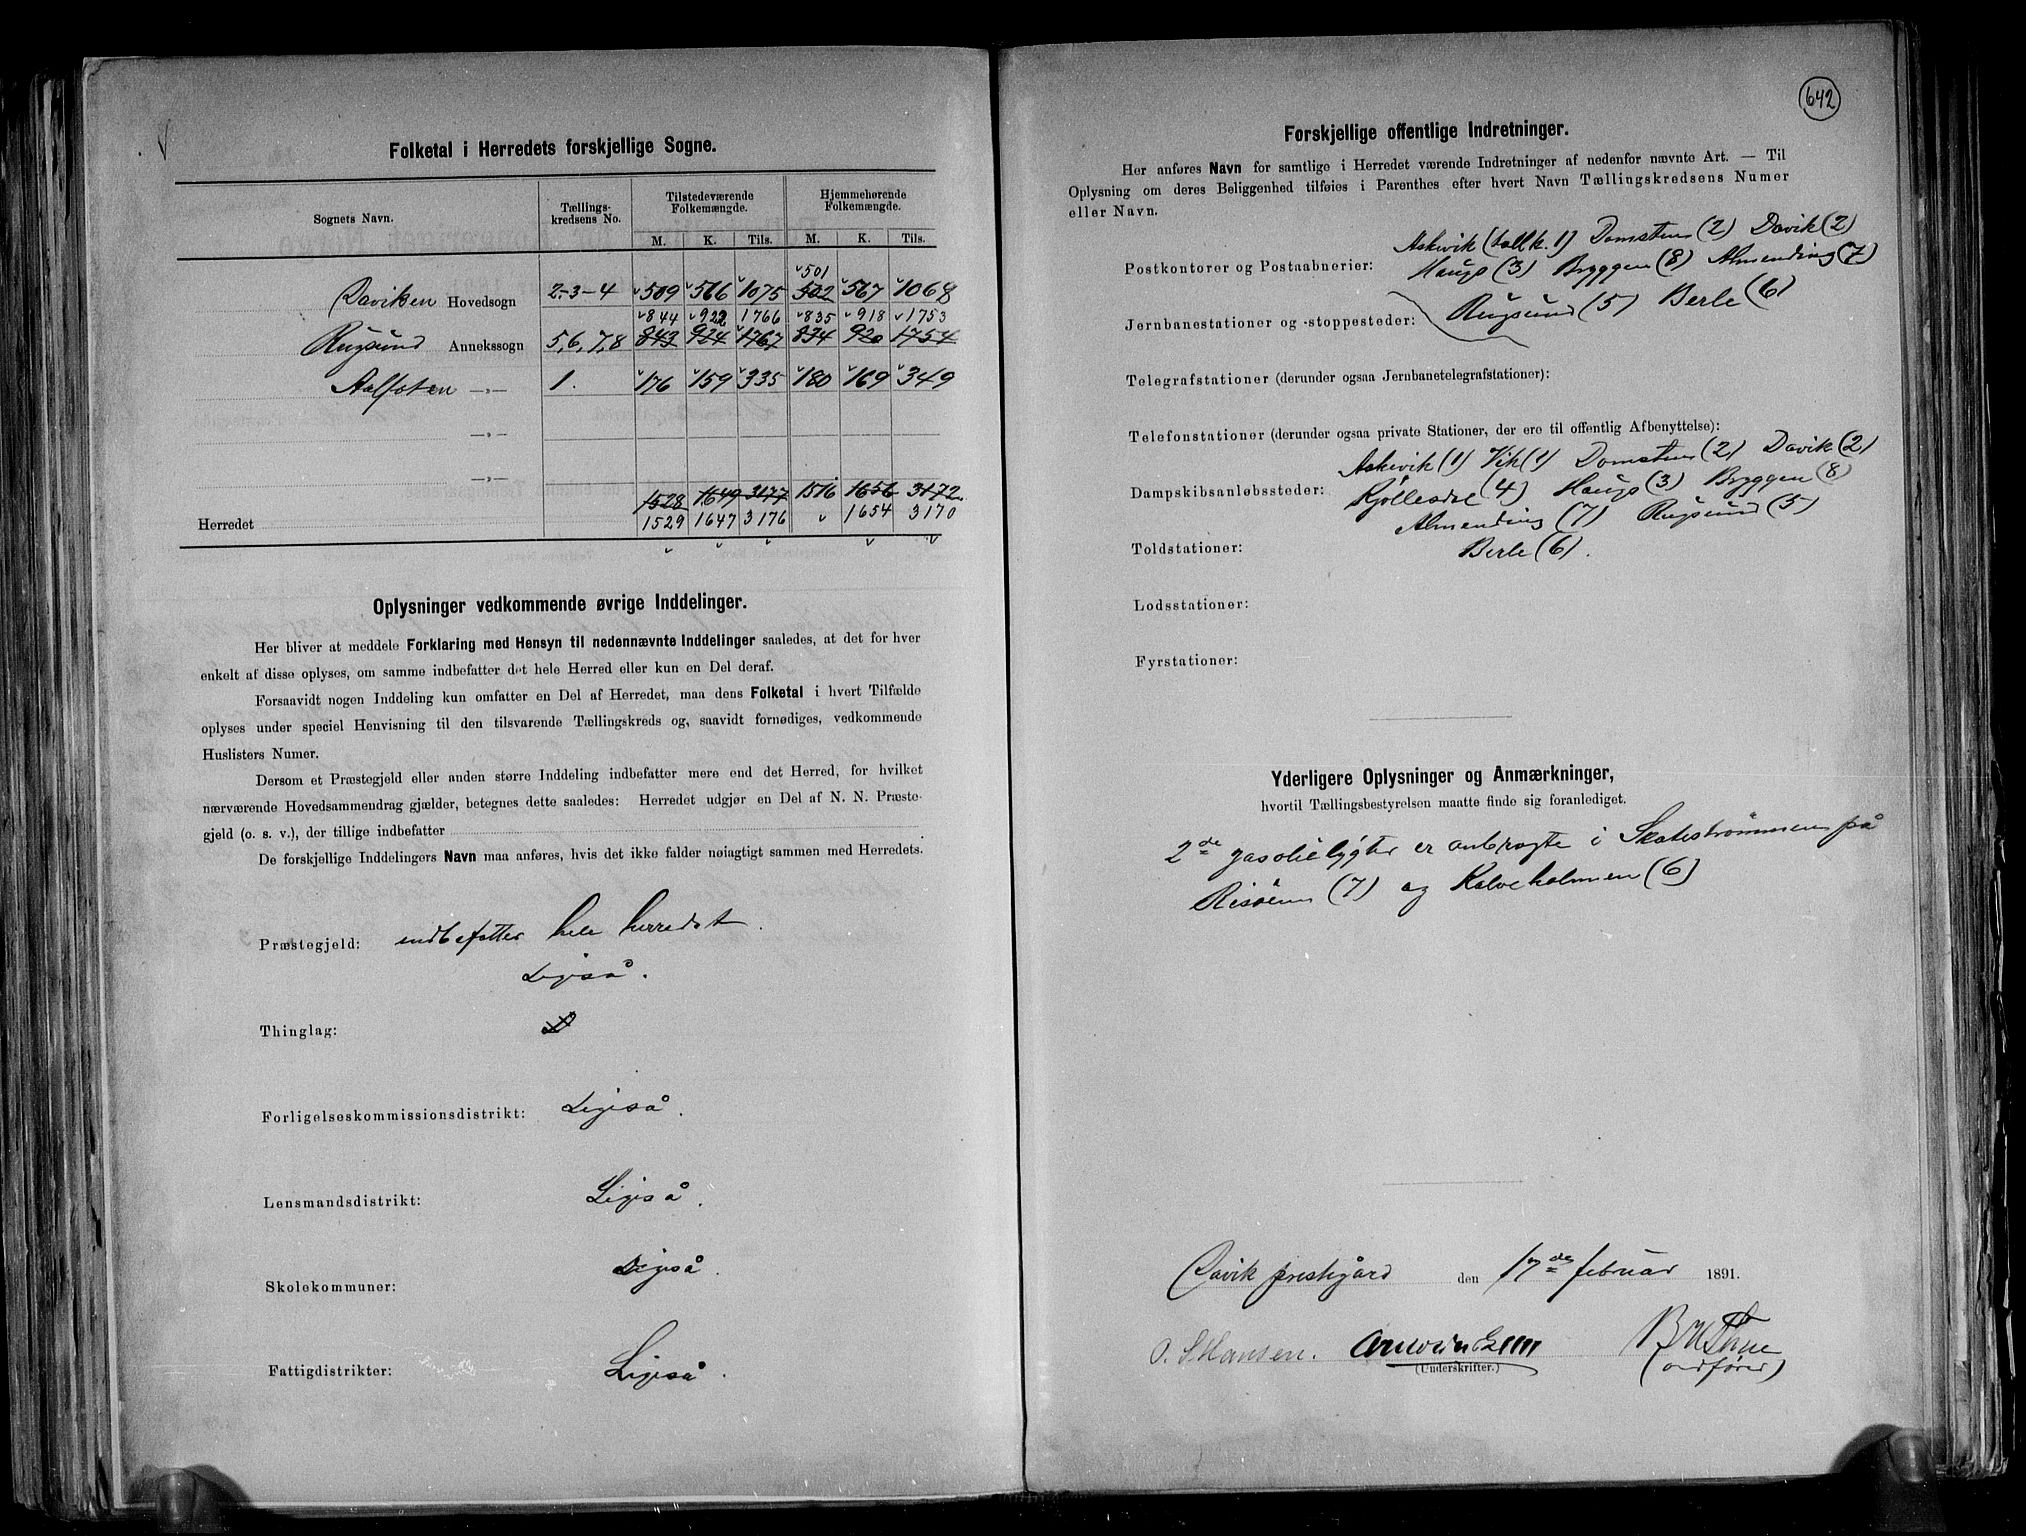 Folketal i Herredets forskjellige Sogne.
Sognets Navn. Tællings- kredsens No. Tilstedeværende Folkemængde. Hjemmehørende Folkemængde.
M. K. Tils. M. K. Tils.
501
Daviken Hovedsogn 2-3-4 509 566 1075 502 567 1068
844 922 1766 835 918 1753
Rugsund Annekssogn 5,6,7,8 843 924 1767 834 920 1754
Aalfoten —„— 1. 176 159 335 180 169 349
—„—
—„—
1528 1649 3177 1516 1656 3172
Herredet 1529 1647 3176 1654 3170
Oplysninger vedkommende øvrige Inddelinger.
Her bliver at meddele Forklaring med Hensyn til nedennævnte Inddelinger saaledes, at det for hver
enkelt af disse oplyses, om samme indbefatter det hele Herred eller kun en Del deraf.
Forsaavidt nogen Inddeling kun omfatter en Del af Herredet, maa dens Folketal i hvert Tilfælde
oplyses under speciel Henvisning til den tilsvarende Tællingskreds og, saavidt fornødiges, vedkommende
Huslisters Numer.
Dersom et Præstegjeld eller anden større Inddeling indbefatter mere end det Herred, for hvilket
nærværende Hovedsammendrag gjælder, betegnes dette saaledes: Herredet udgjør en Del af N. N. Præste-
gjeld (o. s. v.), der tillige indbefatter
De forskjellige Inddelingers Navn maa anføres, hvis det ikke falder nøiagtigt sammen med Herredets.
Præstegjeld: indbefatter hele herredet.
Ligeså.
Thinglag:
Forligelseskommissionsdistrikt: Ligeså.
Lensmandsdistrikt: Ligeså.
Skolekommuner: Ligeså.
Fattigdistrikter: Ligeså.
642
Forskjellige offentlige Indretninger.
Her anføres Navn for samtlige i Herredet værende Indretninger af nedenfor nævnte Art. — Til
Oplysning om deres Beliggenhed tilføies i Parenthes efter hvert Navn Tællingskredsens Numer
eller Navn.
Askevik (tællk. 1) Domsten (2) Davik (2)
Postkontorer og Postaabnerier: Haugs (3) Bryggen (8) Almending (7)
Jernbanestationer og -stoppesteder: Rugsund (5) Berle (6)
Telegrafstationer (derunder ogsaa Jernbanetelegrafstationer):
Telefonstationer (derunder ogsaa private Stationer, der ere til offentlig Afbenyttelse):
Askevik (1) Vik (1) Domsten (2) Davik (2)
Dampskibsanløbssteder: Kjöllesdal (4) Haugs (3) Bryggen (8)
Almending (7) Rugsund (5)
Toldstationer: Berle (6).
Lodsstationer:
Fyrstationer:
Yderligere Oplysninger og Anmærkninger,
hvortil Tællingsbestyrelsen maatte finde sig foranlediget.
2de gasolielygter er anbragte i Skatestrømmen på
Risöen (7) og Kalveholmen (6)
Davik prestegård den 17de februar 1891.
O. S Hansen.
(Underskrifter.)
(ordfører)